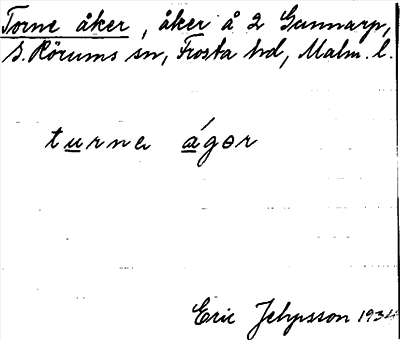 Torne åker, åker å 2 Gunnarp,
S. Rörums sn, Frosta hd, Malm. l.
turne ágər
Eric Jehpsson 1934